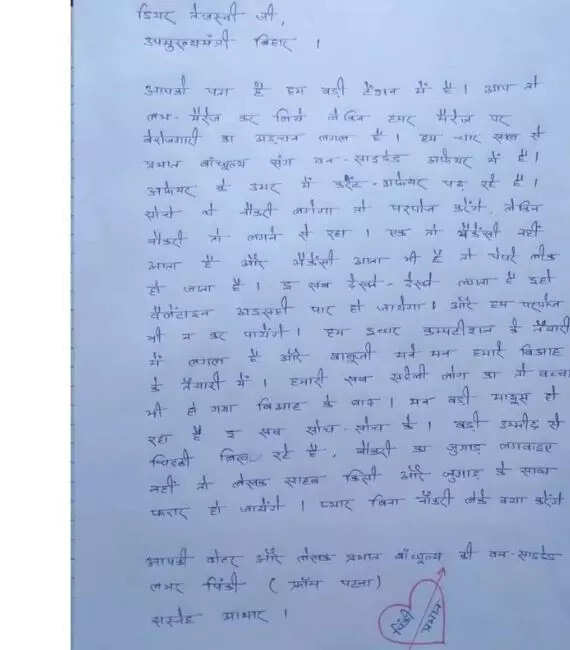 डियर तेजस्वी जी,
उपमुख्यमंत्री बिहार ।
आपको पता है हम बड़ी टेंशन में है । आप तो
लभ-मैरेज कर लिये लेकिन हमर मैरेज पर
बेरोजगारी का अड़चन लगल है । हम चार साल से
प्रभात बाँधुल्य संग वन-साइडेड अफेयर में है ।
अफेयर के उमर में करेंट-अफेयर पढ़ रहे है ।
सोचे थे नौकरी लगेगा तो परपोज करेंगे, लेकिन
नौकरी तो लगने से रहा । एक तो भैकेंसी नहीं
आता है और भैकेंसी आता भी है तो पेपरे लीक
हो जाता है । इ सब देखते-देखते लगता है इहो
वैलेंटाइन अइसही पार हो जायेगा । और हम परपोज
भी न कर पायेंगे । हम इधर कम्पटीशन के तैयारी
में लगल है और बाबूजी मने मन हमारे बिआह
के तैयारी में । हमारी सब सहेली लोग का तो बच्चा
भी हो गया बिआह के बाद । मन बड़ी मायूस हो
रहा है इ सब सोच-सोच के । बड़ी उम्मीद से
चिट्ठी लिख रहे है, नौकरी का जुगाड़ लगवाइए
नहीं तो लेखक साहब किसी और जुगाड़ के साथ
फरार हो जायेंगे । प्यार बिना नौकरी लेके क्या करेंगे
आपकी वोटर और लेखक प्रभात बाँधुल्य की वन-साइडेड
लभर पिंकी ( फ्रॉम पटना)
सस्नेह आभार ।
पिंकी
प्रभात